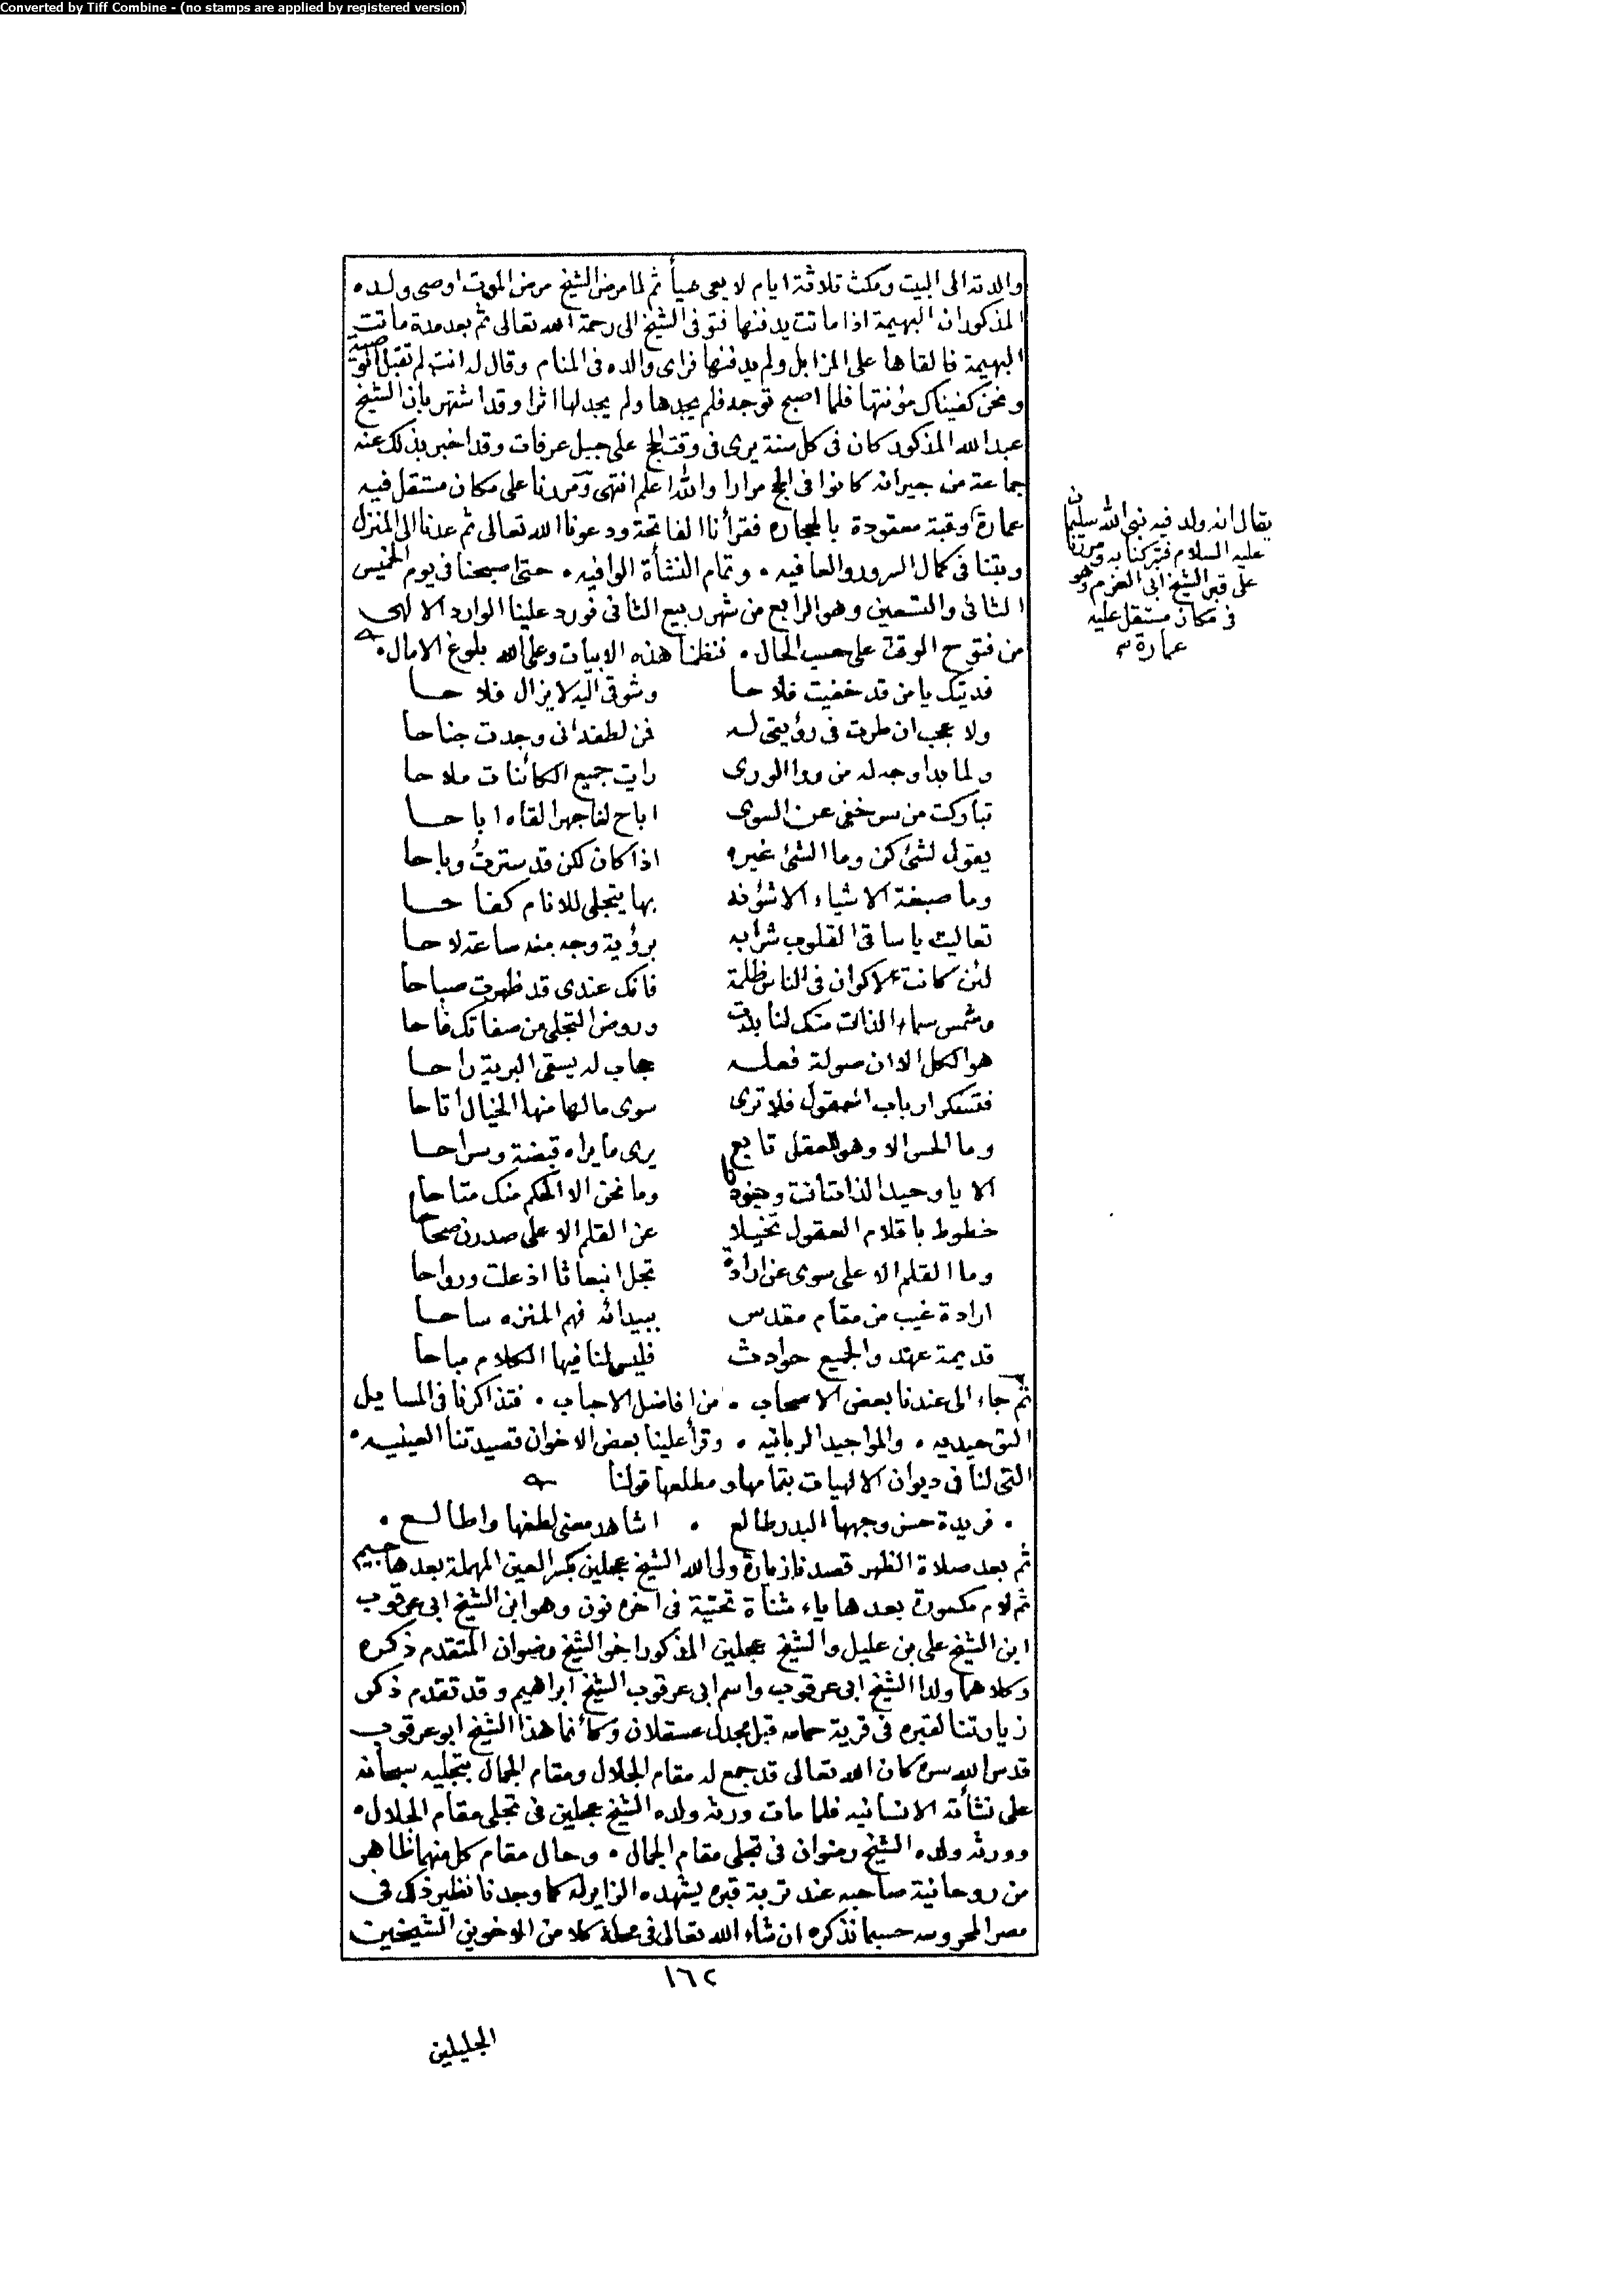 Converted by Tiff Combine - (no stamps are applied by registered version)
والدته الى البيت ومكث ثلاثة ايام لا يعى شيأ ثم لما مرض الشيخ مرض الموت اوصى ولده
المذكور ان البهيمة اذا ماتت يدفنها فتوفى الشيخ الى رحمة الله تعالى ثم بعد مدة ماتت
البهيمة فالقاها على المزابل ولم يدفنها فراى والده فى المنام وقال له انت لم تقبل الوصية
ونحن كفيناك مؤنتها فلما اصبح توجه فلم يجدها ولم يجد لها اثرا وقد اشتهر بان الشيخ
عبد الله المذكور كان فى كل سنة يرى فى وقت الحج على جبل عرفات وقد اخبر بذلك عنه
جماعة من جيرانه كانوا فى الحج مرارا والله اعلم انتهى ومررنا على مكان مستقل فيه
عمارة وقبة معقودة بالحجاره فقرأنا الفاتحة ودعونا الله تعالى ثم عدنا الى المنزل
وبتنا فى كمال السرور والعافيه • وتمام النشأة الوافيه • حتى اصبحنا فى يوم الخميس
الثانى والتسعين وهو الرابع من شهر ربيع الثانى فورد علينا الوارد الالهى
من فتوح الوقت على حسب الحال • فنظمنا هذه الابيات وعلى الله بلوغ الامال •
يقال انه ولد فيه نبى الله سليمان
عليه السلام فتبركنا به ومررنا
على قبر الشيخ ابى العزم وهو
فى مكان مستقل عليه
عمارة
فديتك يا من قد خفيت فلاحا وشوقى اليه لا يزال فلاحا
ولا عجب ان طرت فى رؤيتى له فمن لطفه انى وجدت جناحا
ولما بدا وجه له من ورا الورى رايت جميع الكائنات ملاحا
تباركت من سر خفى عن السوى اباح لنا جهرا لقاه اباحا
يقول لشئ كن وما الشئ غيره اذا كان لكن قد سترت وباحا
وما صبغة الاشياء الا شؤنه بها يتجلى للانام كفاحا
تعاليت يا ساقى القلوب شرابه برؤية وجه منه ساعة لاحا
لئن كانت الاكوان فى الناس ظلمة فانك عندى قد ظهرت صباحا
وشمس سماء الذات منك لنا بدت وروض التجلى من صفاتك فاحا
هو الكل الا ان صولة فعله حجاب له يسقى البرية راحا
فتسكر ارباب العقول فلا ترى سوى ما لها منها الخيال اتاحا
وما الحس الا وهو للعقل تابع يرى ما يراه قبضة وسراحا
الا يا وحيد الذات انت وجودنا وما نحن الا الحكم منك متاحا
خطوط باقلام العقول تخيلا عن القلم الاعلى صدرن صحاحا
وما القلم الاعلى سوى عن ارادة تجل انبعاثا اذ علت ورواحا
ارادة غيب من مقام مقدس ببيدائه فهم المنزه ساحا
قديمة عهد والجميع حوادث فليس لنا فيها الكلام مباحا
ثم جاء الى عندنا بعض الاصحاب • من افاضل الاحباب • فتذاكرنا فى المسايل
التوحيديه • والمواجيد الربانيه • وقرأ علينا بعض الاخوان قصيدتنا العينيه •
التى لنا فى ديوان الالهيات بتمامها ومطلعها قولنا
• فريدة حسن وجهها البدر طالع • اشاهد معنى لطفها واطالع •
ثم بعد صلاة الظهر قصدنا زيارة ولى الله الشيخ عجلين بكسر العين المهملة بعدها جيم
ثم لام مكسورة بعدها ياء مثناة تحتية فى اخره نون وهو ابن الشيخ ابى عرقوب
ابن الشيخ على بن عليل والشيخ عجلين المذكور اخو الشيخ رضوان المتقدم ذكره
وكلاهما ولدا الشيخ ابى عرقوب واسم ابى عرقوب الشيخ ابراهيم وقد تقدم ذكر
زيارتنا لقبره فى قرية حمامه قبل مجدل عسقلان وكأنما هذا الشيخ ابو عرقوب
قدس الله سره كان الله تعالى قد جمع له مقام الجلال ومقام الجمال بتجليه سبحانه
على نشأته الانسانيه فلما مات ورثه ولده الشيخ عجلين فى تجلى مقام الجلال •
وورثه ولده الشيخ رضوان فى تجلى مقام الجمال • وحال مقام كل منهما ظاهر
من روحانية صاحبه عند تربة قبره يشهده الزاير له كما وجدنا نظير ذلك فى
مصر المحروسه حسبما نذكره ان شاء الله تعالى فى محله كلا من الاخوين الشيخين
١٦٢
الجليلين